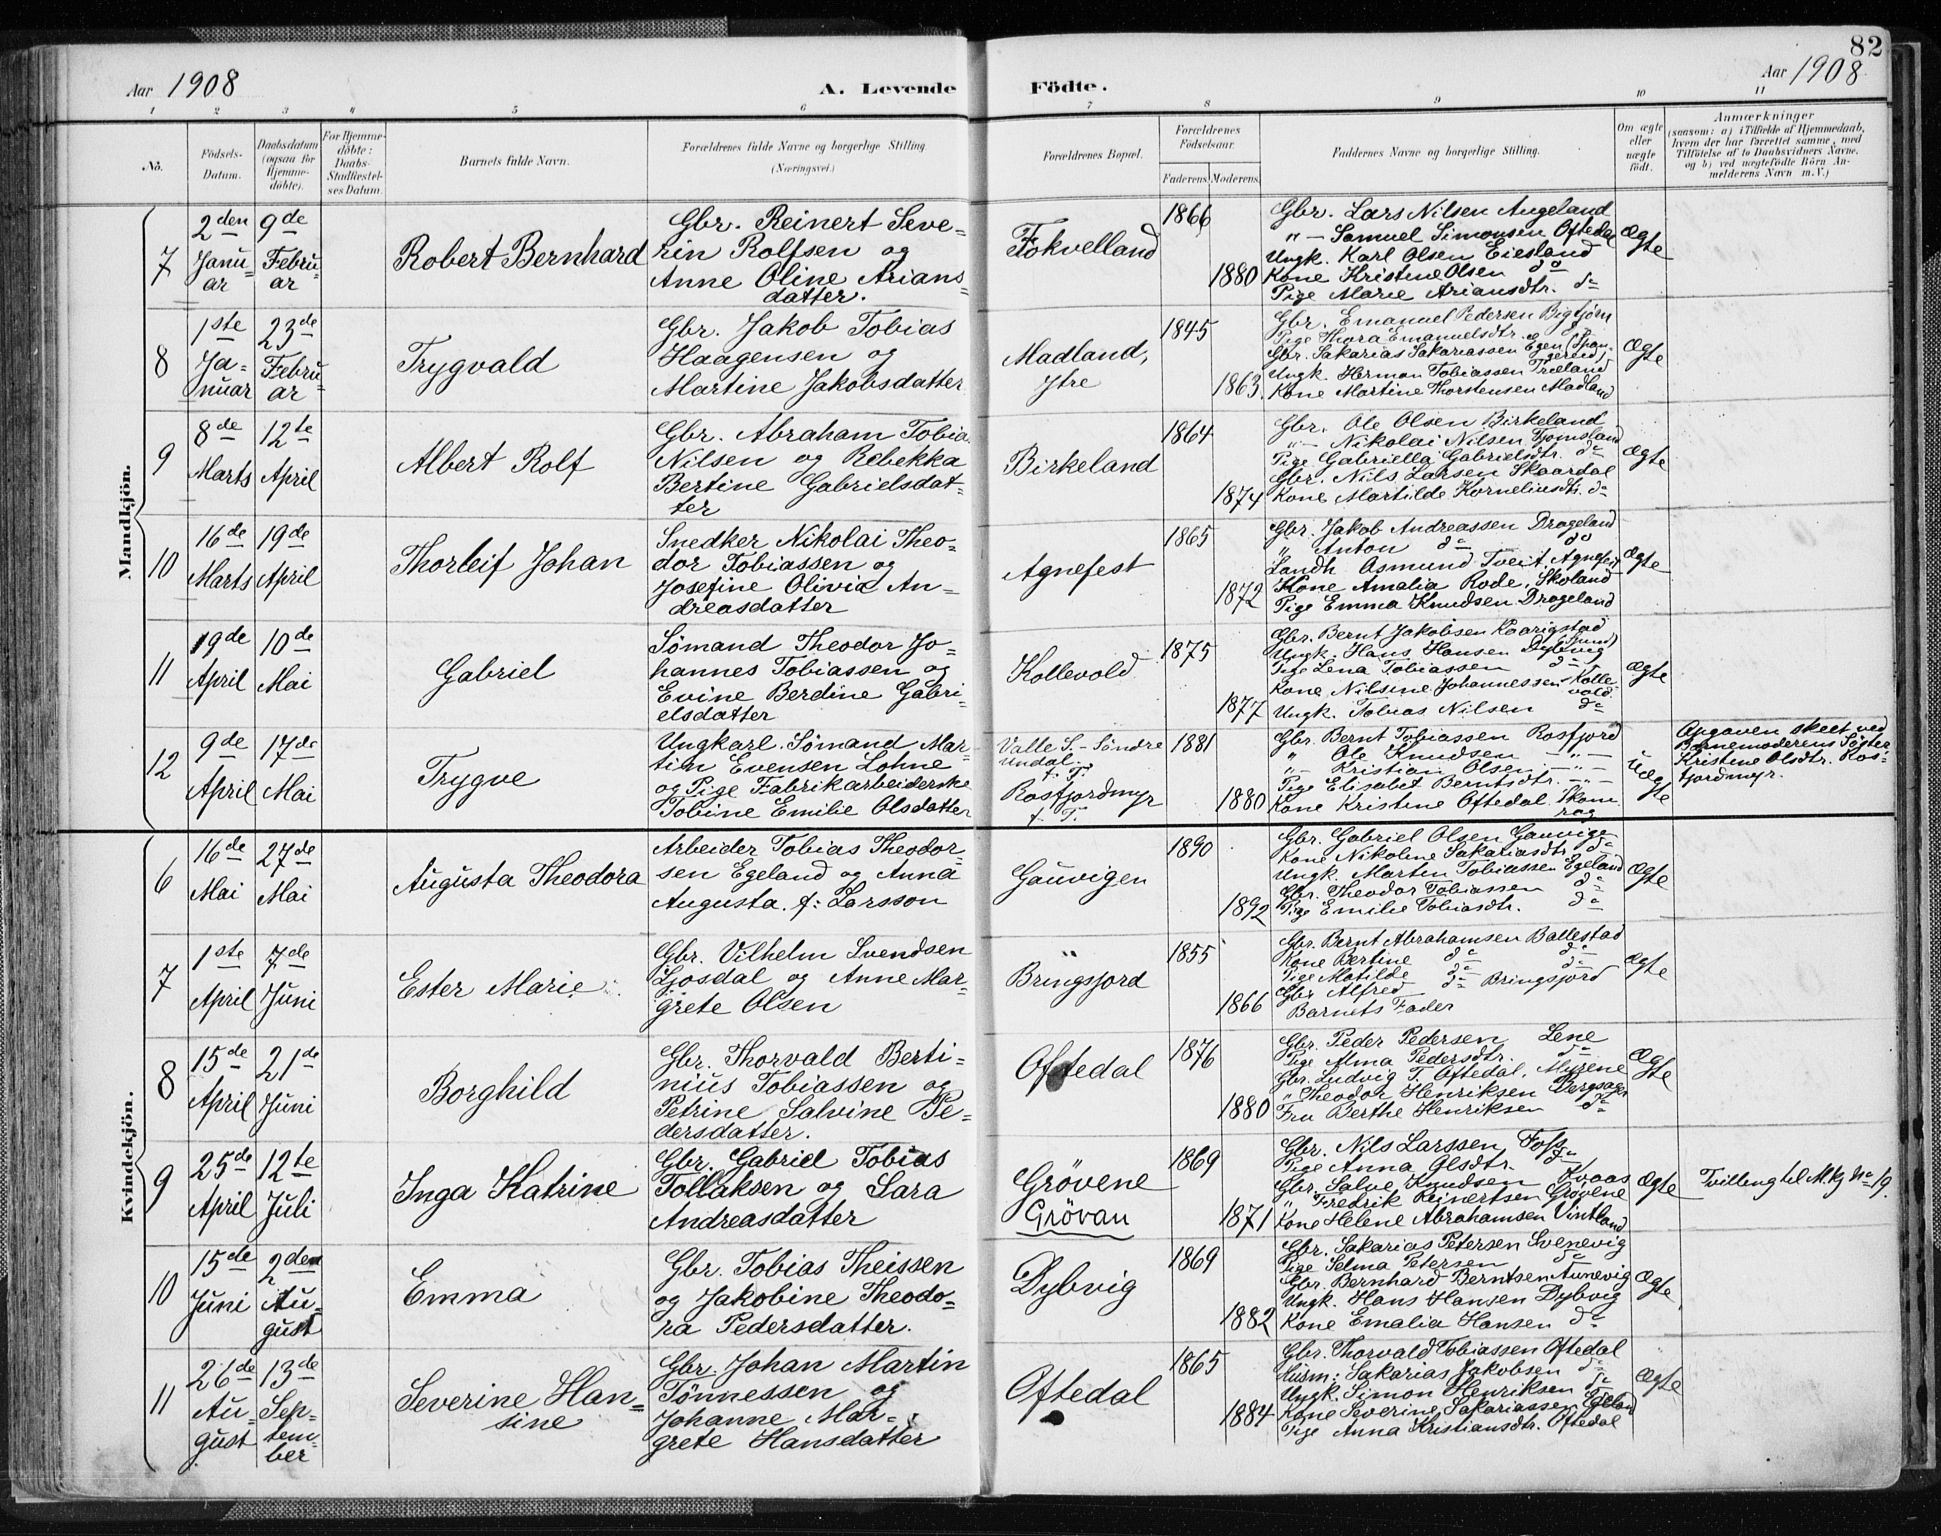 82
Aar 1908
A. Levende Födte.
Aar 1908
1 2 3 4 5 6 7 8 9 10 11
No.
Födsels-Datum.
Daabsdatum (ogsaa for Hjemmedöbte).
For Hjemmedöbte: Daabs-Stadfæstelses Datum.
Barnets fulde Navn.
Forældrenes fulde Navne og borgerlige Stilling. (Næringsvei.)
Forældrenes Bopæl.
Forældrenes Födselsaar.
Faderens. Moderens.
Faddernes Navne og borgerlige Stilling.
Om ægte eller uægte födt.
Anmærkninger
(saasom: a) i Tilfælde af Hjemmedaab, hvem der har forrettet samme, med Tilföielse af to Daabsvidners Navne, og b) ved uegtefödte Börn Anmelderens Navn m. V.)
Mandkjön.
7
2den Januar
9de Februar
Robert Bernhard
Gbr. Reinert Seve-
rin Rolfsen og
Anne Oline Arians-
datter.
Fokvelland
1866
1880
Gbr. Lars Nilsen Augeland
"— Samuel Simonsen Oftedal
Ungk. Karl Olsen Eiesland
Kone Kristine Olsen do
Pige Marie Ariansdtr. do
Ægte
8
1ste Januar
23de Februar
Trygvald
Gbr. Jakob Tobias
Haagensen og
Martine Jakobsdatter
Madland, Ytre
1845
1863.
Gbr. Emanuel Pedersen Bigtjörn
Pige Thora Emanuelsdtr. do
Gbr. Sakarias Sakariassen Egen
Ungk. Herman Tobiassen Træland
Kone Martine Thorstensen Madland
Ægte
9
8de Marts
12te April
Albert Rolf
Gbr. Abraham Tobias
Nilsen og Rebekka
Bertine Gabrielsdat-
ter
Birkeland
1864
1874
Gbr. Ole Olsen Birkeland
"— Nikolai Nilsen Fjomsland
Pige Gabriella Gabrielsdtr. do
Gbr. Nils Larsen Skaardal
Kone Martilde Korneliusdtr. do
Ægte
10
16de Marts
19de April
Thorleif Johan
Snedker Nikolai Theo-
dor Tobiassen og
Josefine Olivia An-
dreasdatter
Agnefest
1865
1872
Gbr. Jakob Andreassen Drageland
" Anton do do
Landh. Osmund Tveit, Agnefest
Kone Amalia Rode, Skoland
Pige Emma Knudsen Drageland
Ægte
11
19de April
10de Mai
Gabriel
Sömand Theodor Jo-
hannes Tobiassen og
Evine Berdine Gabri-
elsdatter
Kollevold
1875
1877
Gbr. Bernt Jakobsen Kaarigstad
Ungk. Hans Hansen Dybvig
Pige Lena Tobiassen do
Kone Nilsine Johannessen Kolle-
vold
Ungk. Tobias Nilsen do
Ægte
12
9de April
17de Mai
Trygve
Ungkarl. Sömand Mar-
tin Evensen Lohne
og Pige Fabrikarbeiderske
Tobine Emilie Olsdatter
Valle S.- Söndre
Undal.
f. T.
Rosfjordmyr
f. T.
1881
1880
Gbr. Bernt Tobiassen Rosfjord
" Ole Knudsen —"—
"— Kristian Olsen —"—
Pige Elisabet Berntsdtr. —"—
Kone Kristine Oftedal. Skom-
rag
Uægte
Opgaven skeet ved
Barnemoderens Söster
Kristine Olsdtr. Ros-
fjordmyr.
Kvindekjön.
6
16de Mai
27de Mai
Augusta Theodora
Arbeider Tobias Theodor-
sen Egeland og Anna
Augusta. f: Larsson
Gauvigen
1890
1892
Gbr. Gabriel Olsen Gauvige
Kone Nikoline Sakariasdtr. do
Ungk. Martin Tobiassen Egeland
Gbr. Theodor Tobiassen do
Pige Emilie Tobiasdtr. do
Ægte
7
1ste April
7de Juni
Ester Marie
Gbr. Vilhelm Svendsen
Ljosdal og Anne Mar-
grete Olsen
Bringsfjord
1855
1866
Gbr. Bernt Abrahamsen Ballestad
Kone Bertine do do
Pige Matilde do do
Gbr Alfred do Bringsfjord
Barnets Fader
Ægte
8
15de April
21de Juni
Borghild
Gbr. Thorvald Berti-
nius Tobiassen og
Petrine Salvine Pe-
dersdatter.
Oftedal
1876
1880
Gbr. Peder Pedersen Lene
Pige Alma Pedersdtr. do
Gbr. Ludvig T. Oftedal, Myrene
" Theodor Henriksen Bergsager
Fru Berthe Henriksen do
Ægte
9
25de April
12te Juli
Inga Katrine
Gbr. Gabriel Tobias
Tollaksen og Sara
Andreasdatter
Grövene
Grövan
1869
1871
Gbr. Nils Larssen, Foss
Pige Anna Olsdtr. do
Gbr. Salve Knudsen Kvaas
" Fredrik Reinertsen Grövene
Kone Helene Abrahamsen Vintland
Ægte
Tvilling til M.kj No 19.
10
15de Juni
2den August
Emma
Gbr. Tobias Theissen
og Jakobine Theodo-
ra Pedersdatter.
Dybvig
1869
1882
Gbr. Sakarias Petersen Svenevig
Pige Selma Petersen do
Gbr. Bernhard Berntsen Aunevig
Ungk. Hans Hansen Dybvig
Kone Emalia Hansen do
Ægte
11
26de August
13de September
Severine Han-
sine
Gbr. Johan Martin
Tönnessen og
Johanne Mar-
grete Hansdatter
Oftedal
1865
1884
Gbr. Thorvald Tobiassen Oftedal
Husm: Sakarias Jakobsen do
Ungk. Simon Henriksen do
Kone Severine Sakariassen Egeland
Pige Anna Kristiansdtr. Oftedal
Ægte